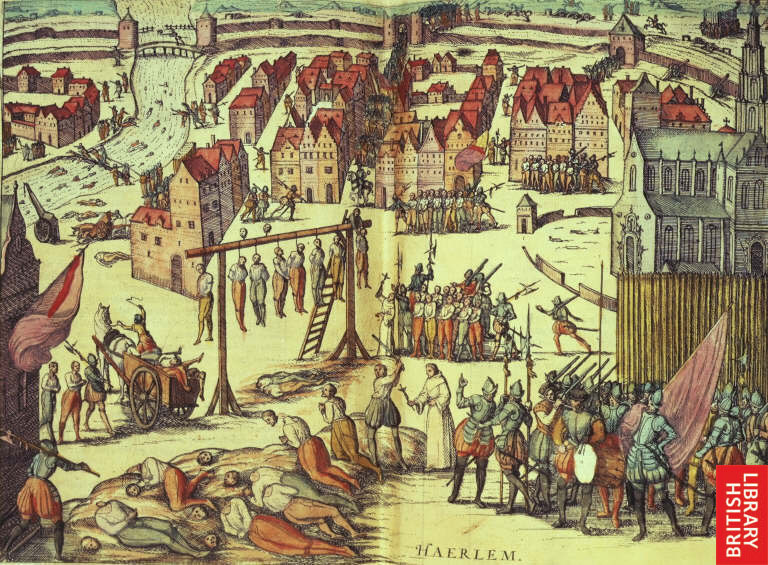 HAERLEM.
BRITISH
LIBRARY